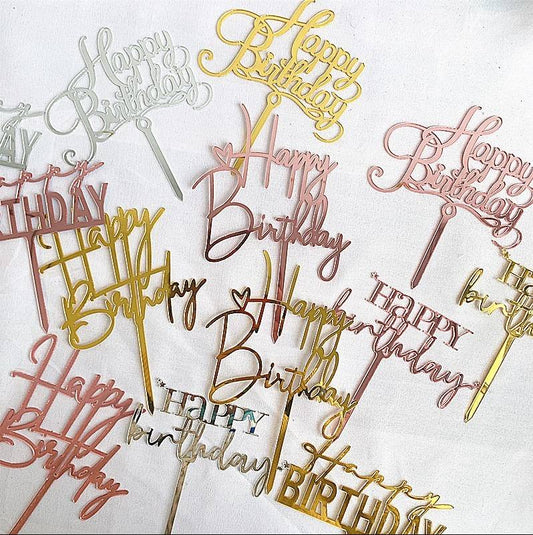 Happy
Birthday
Happy
Birthday
AY
Happy
Birthday
Happy
Birthday
appy
RTHDAY
Happy
Birthday
HAPPY
birthday
HAPPY
birthday
Happy
Birthday
Happy
Birthday
HAPPY
birthday
Happy
BIRTHDAY